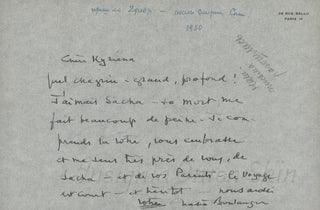 1950
36 RUE BALLU
PARIS IX
Chère Kyriena
quel chagrin - grand, profond !
J'aimais Sacha - sa mort me
fait beaucoup de peine - Je com-
prends la vôtre, vous embrasse
et me sens très près de vous, de
Sacha - et de vos Parents - le voyage
est court - et bientôt nous
votre Nadia Boulanger